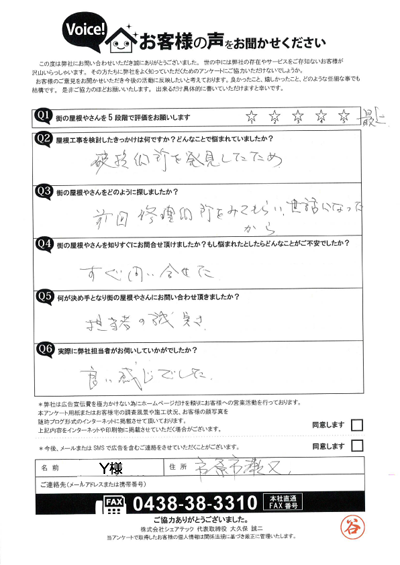 Voice!
お客様の声をお聞かせください
この度は弊社にお問い合わせいただき誠にありがとうございました。世の中には弊社の存在やサービスをご存知ないお客様が
沢山いらっしゃいます。その方たちに弊社をよく知っていただくためのアンケートにご協力いただけないでしょうか。
お客様のご意見をお聞かせいただき今後の活動に反映したいと考えております。良かったこと、嬉しかったこと、どのような些細な事でも
結構です。是非ご協力のほどお願いいたします。出来るだけ具体的に書いていただけますと幸いです。
Q1 街の屋根やさんを5段階で評価をお願いします ☆ ☆ ☆ ☆ ☆ 最上
Q2 屋根工事を検討したきっかけは何ですか？どんなことで悩まれていましたか？
破損個所を発見したため
Q3 街の屋根やさんをどのように探しましたか？
前回修理個所をみてもらい、世話になった
から
Q4 街の屋根やさんを知りすぐにお問合せ頂けましたか？もし悩まれたとしたらどんなことがご不安でしたか？
すぐ問い合せた
Q5 何が決め手となり街の屋根やさんにお問い合わせ頂きましたか？
担当者の誠実さ
Q6 実際に弊社担当者がお伺いしていかがでしたか？
良い感じでした
＊弊社は広告宣伝費を極力かけない為にホームページだけを頼りにお客様への営業活動を行っております。
本アンケート用紙またはお客様宅の調査風景や施工状況、お客様の顔写真を
随時ブログ形式のインターネットに掲載させて頂いております。
上記内容をインターネットや印刷物に掲載させていただく場合がございます。 同意します □
＊今後、メールまたはSMSで広告を含むご連絡をさせていただくことがございます。 同意します □
名前 Y様 住所 市原市
ご連絡先(メールアドレスまたは携帯番号)
FAX 0438-38-3310 本社直通 FAX番号
ご協力ありがとうございました。
株式会社シェアテック 代表取締役 大久保 誠二
当アンケートで取得したお客様の個人情報は関係法規に基づき厳正に管理いたします。
谷